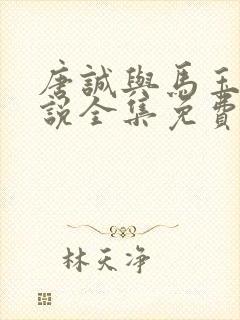 唐誠與馬玉
說全集免費
林天净